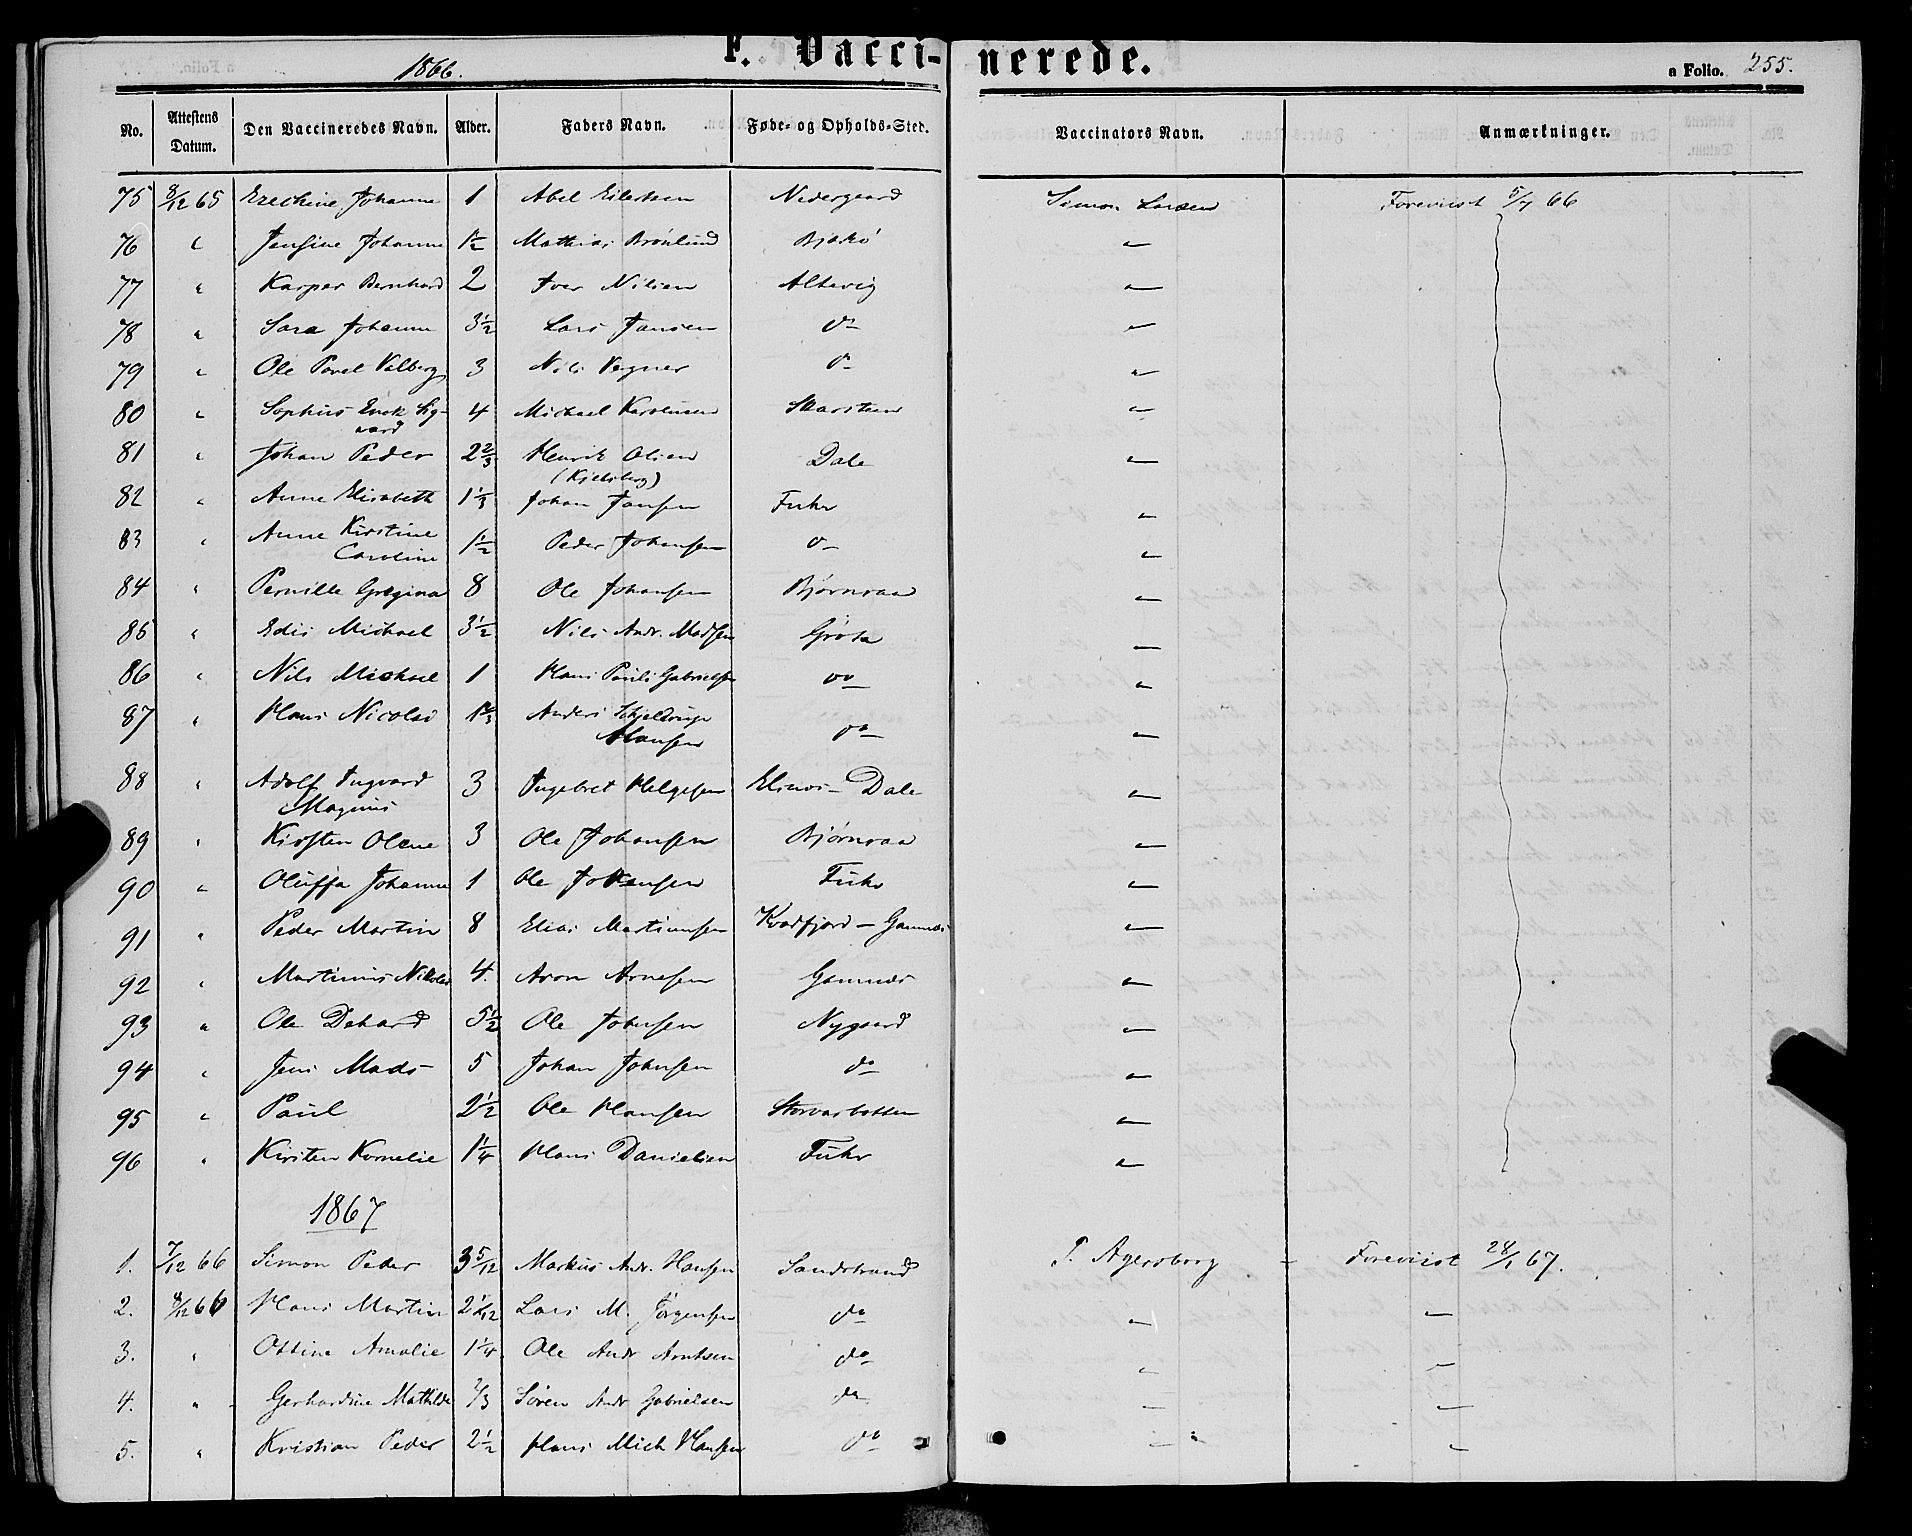 1866. F. Vaccinerede. a Folio. 255.
No. Attestens Datum. Den Vaccineredes Navn. Alder. Faders Navn. Føde- og Opholds-Sted. Vaccinators Navn. Anmærkninger.
75 8/12 65 Ezechine Johanne 1 Abel Eilertsen Nedergaard Simon Larsen Foreviist 5/7 66
76 " Jensine Johanne 1½ Mathias Brønlund Bjarkø —
77 " Kasper Bernhard 2 Iver Nilsen Altevig —
78 " Sara Johanne 3½ Lars Jansen do —
79 " Ole Pavel Valberg 3 Nils Vegner do —
80 " Sophus Enok Sigvard 4 Michael Karolusen Skarsteen —
81 " Johan Peder 2⅔ Henrik Olsen (Kjelsberg) Dale —
82 " Anne Elisabeth 1⅓ Johan Jansen Fuhr —
83 " Anne Kirstine Caroline 1½ Peder Johansen do —
84 " Pernille Gregina 8 Ole Johansen Bjørnraa —
85 " Edis Michael 3½ Nils Andr. Madsen Grøta —
86 " Nils Michael 1 Hans Pauls Gabrielsen do —
87 " Hans Nicolai Anders Schjeldrup Hansen do —
88 " Adolf Ingvard Magnus 3 Ingebret Helgesen Elnes - Dale —
89 " Kirsten Olene 3 Ole Johansen Bjørnraa —
90 " Oluffa Johanne 1 Ole Johansen Fuhr —
91 " Peder Martin 8 Elias Martinusen Kvædfjord - Gamnes —
92 " Martinus Nikolai 4. Aron Arnesen Gamnes —
93 " Ole Dehard 5½ Ole Johnsen Nygaard —
94 " Jens Mads 5 Johan Johnsen do —
95 " Paul 2½ Ole Hansen Storvasbotten —
96 " Kirsten Kornelie 1¼ Hans Danielsen Fuhr —
1867
1. 7/12 66 Simon Peder 3 5/12 Markus Andr. Hansen Sandstrand P. Agersborg - Foreviist 28/1 67.
2. 8/12 66 Hans Martin 2 1/12 Lars M. Jørgensen do — —
3. " Ottine Amalie 1¼ Ole Andr Arntsen do — —
4. " Gerhardine Mathilde 2/3 Søren Andr Gabrielsen do — —
5. " Kristian Peder 2½ Hans Mich Hansen do — —